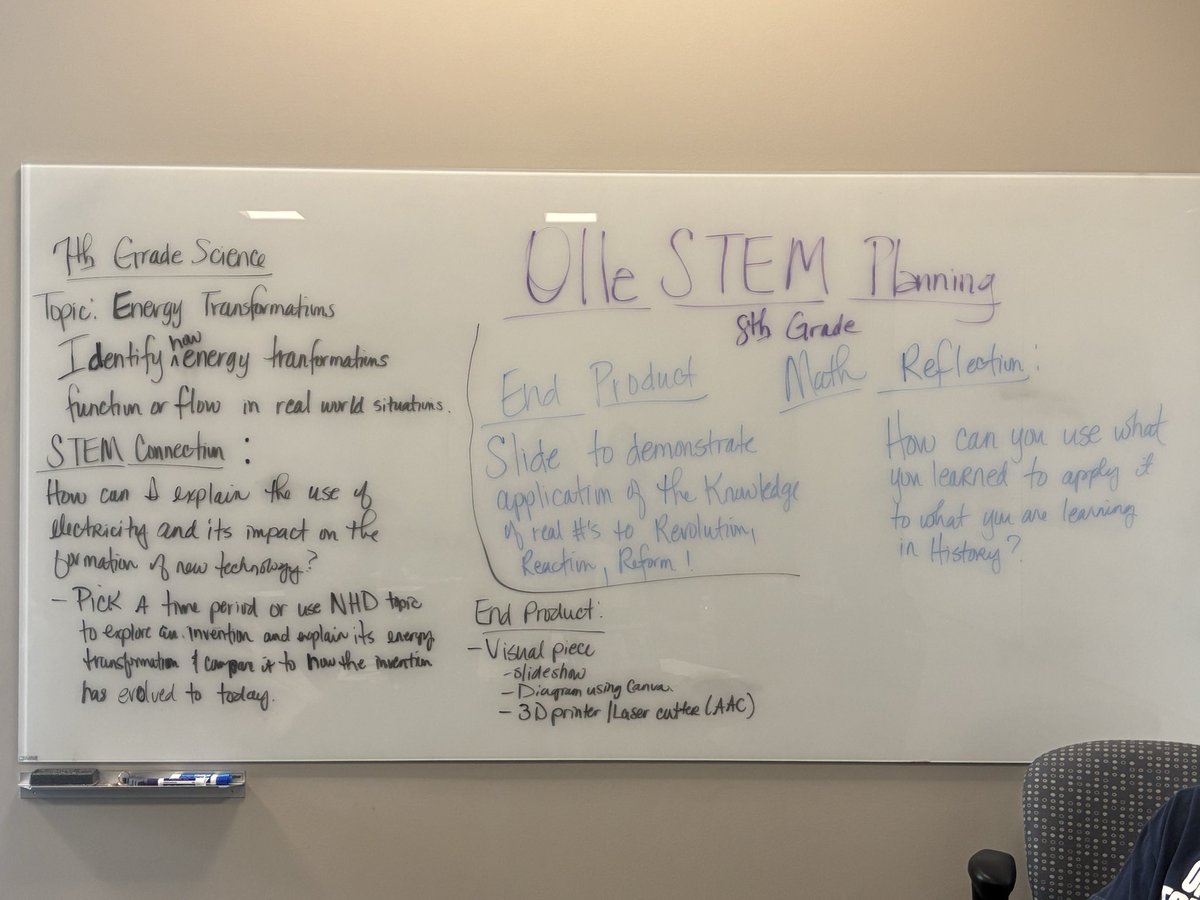 7th Grade Science
Topic: Energy Transformations
Identify how energy tranformations
function or flow in real world situations.
STEM Connection:
How can I explain the use of
electricity and its impact on the
formation of new technology?
- Pick A time period or use NHD topic
to explore an invention and explain its energy
transformation & compare it to how the invention
has evolved to today.
Olle STEM Planning
8th Grade
End Product
Slide to demonstrate
application of the Knowledge
of real #'s to Revolution,
Reaction, Reform!
Math Reflection:
How can you use what
you learned to apply it
to what you are learning
in History?
End Product:
- Visual piece
- slideshow
- Diagram using Canva.
- 3D printer/Laser cutter (AAC)